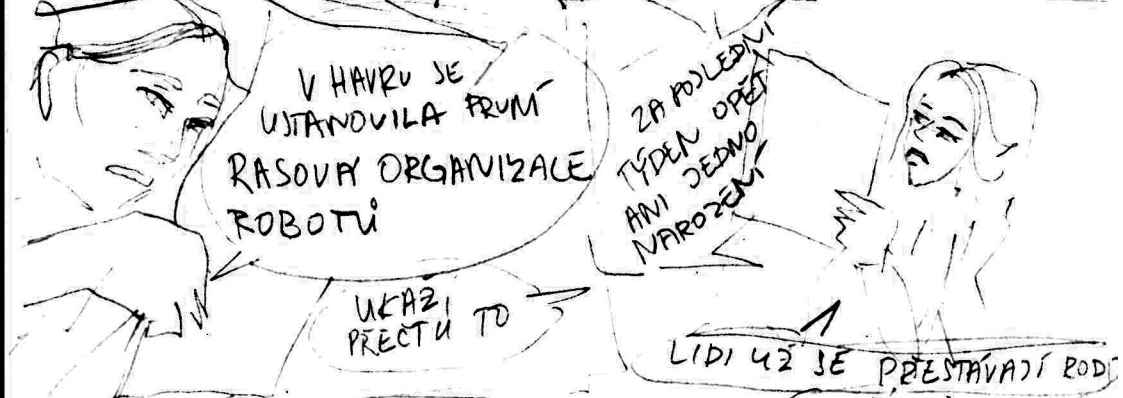 V HAVRU SE
USTANOVILA PRVNÍ
RASOVÁ ORGANIZACE
ROBOTŮ
UKAZ,
PŘEČTU TO
ZA POSLEDNÍ
TÝDEN OPĚT
ANI JEDNO
NAROZENÍ
LIDI UŽ SE PŘESTÁVAJÍ RODI